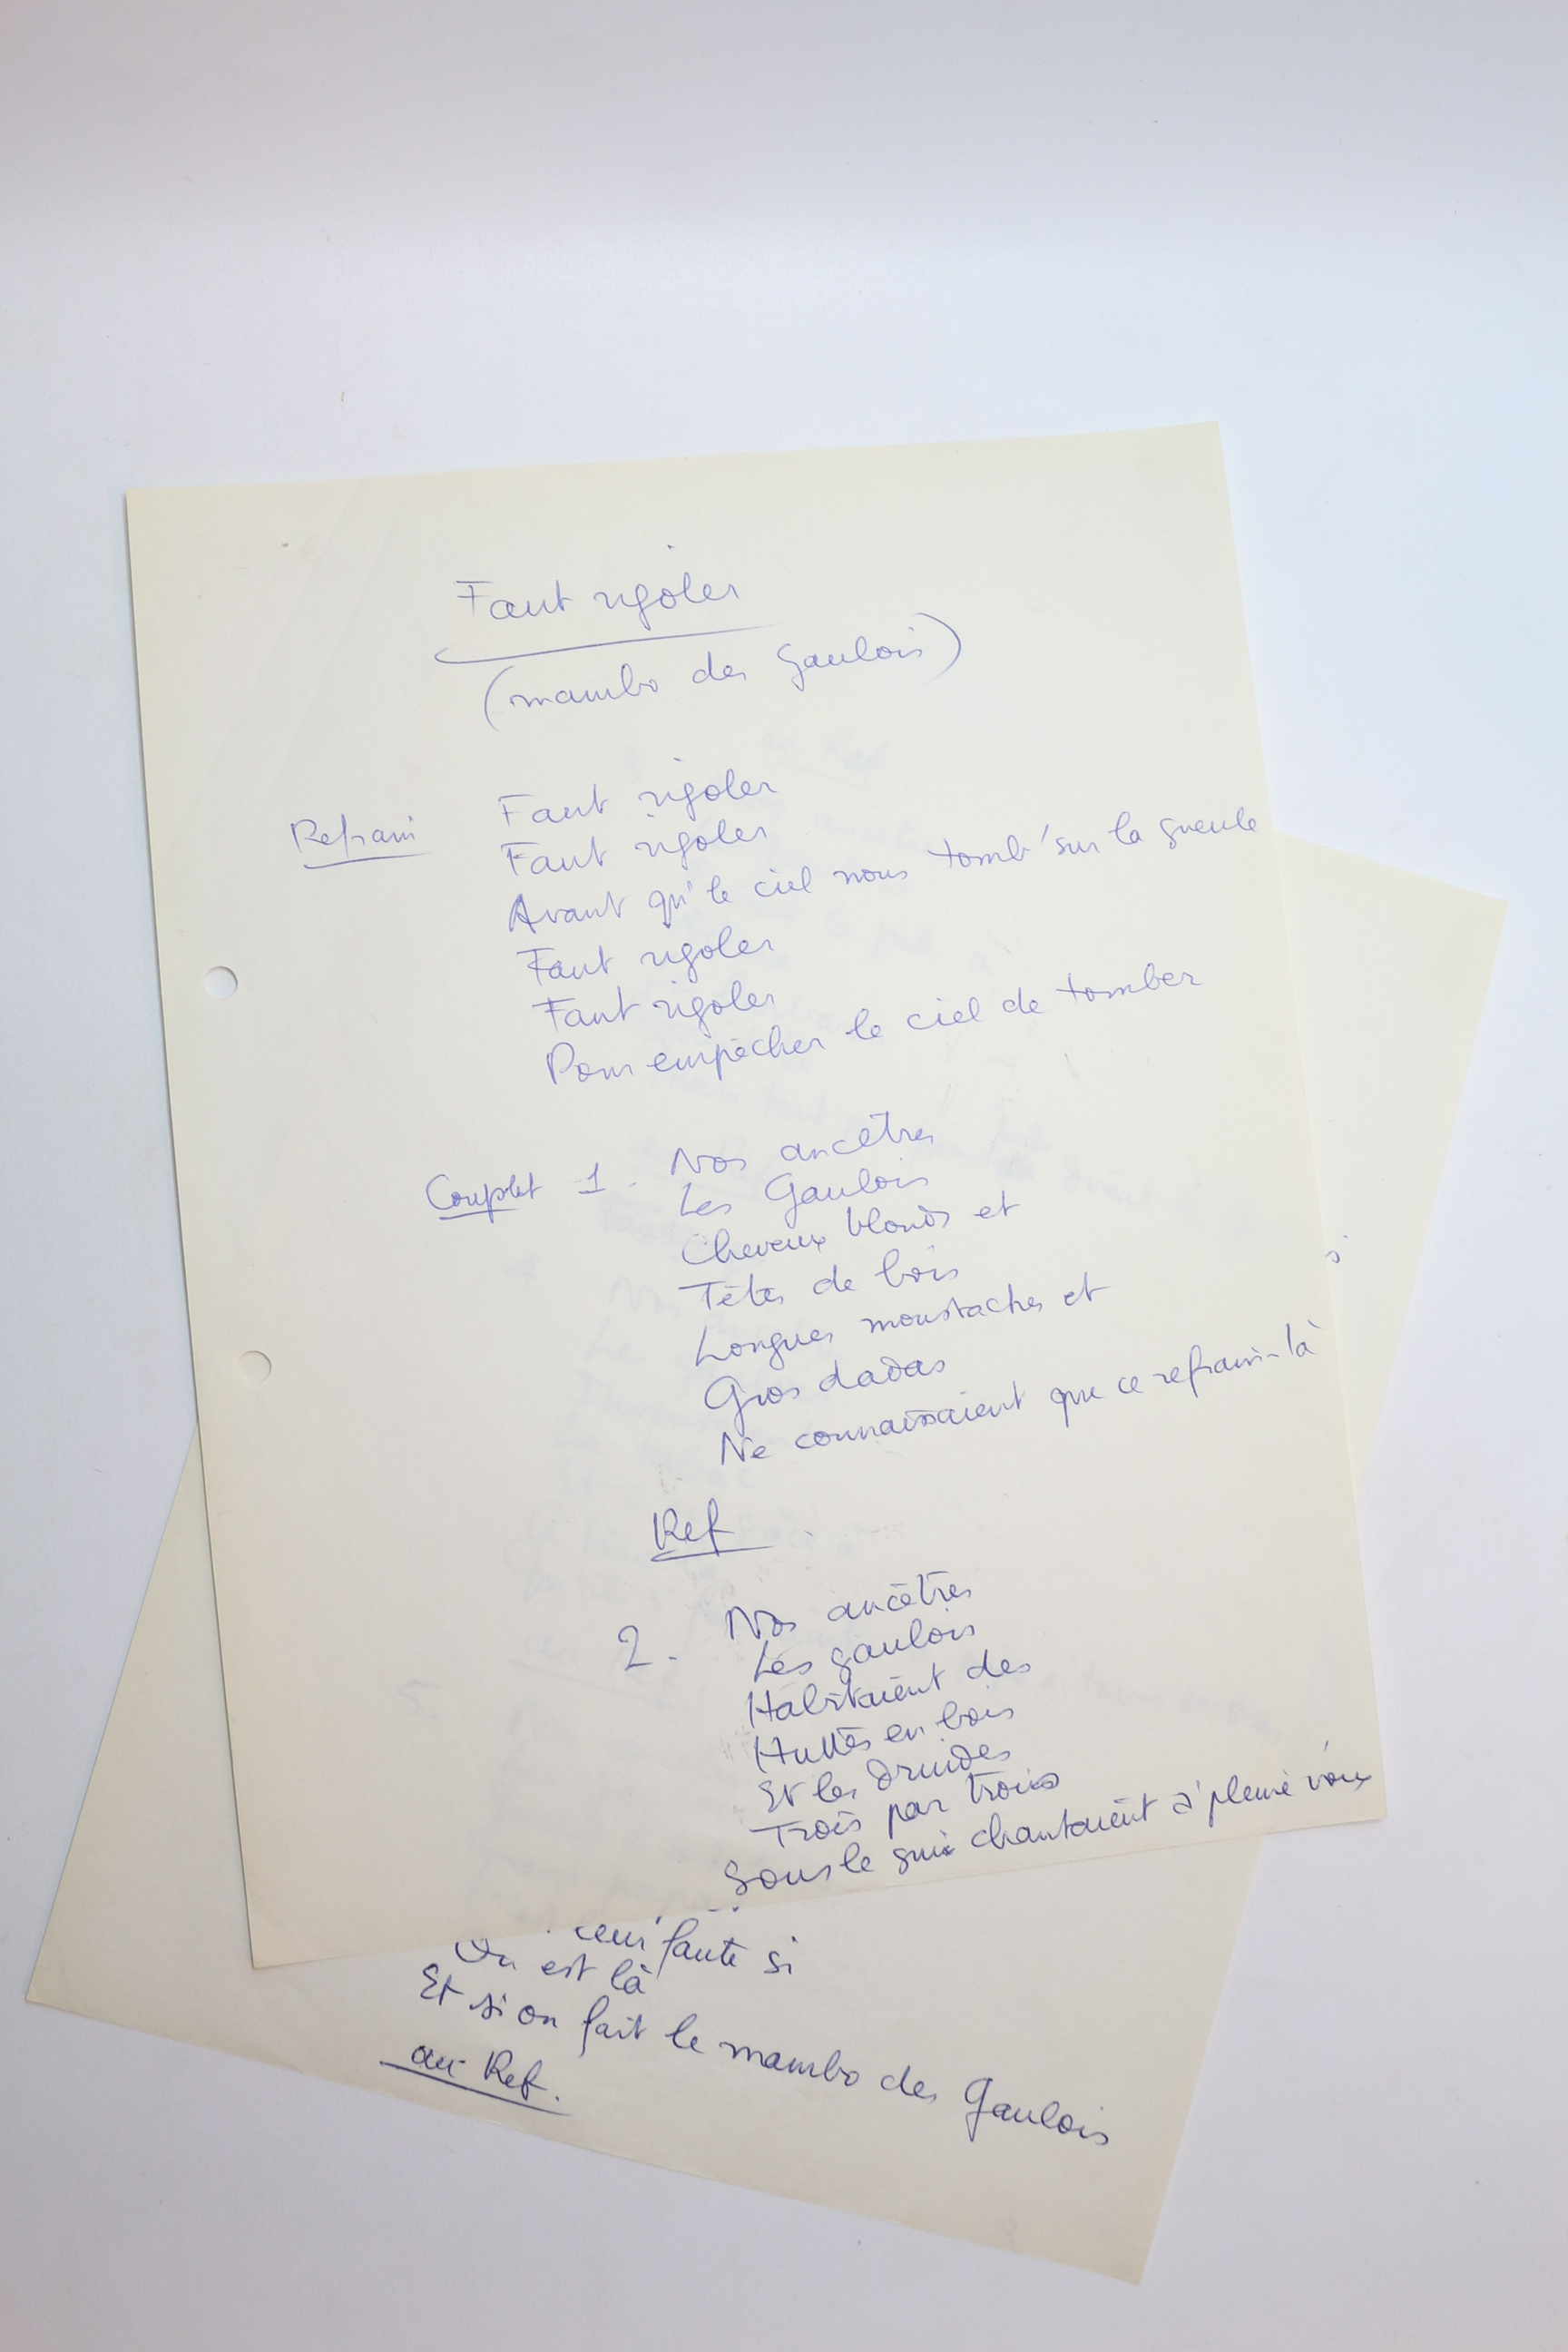 Faut rigoler
(mambo des gaulois)
Refrain
Faut rigoler
Faut rigoler
Avant qu'le ciel nous tomb' sur la gueule
Faut rigoler
Faut rigoler
Pour empêcher le ciel de tomber
Couplet 1. Nos ancêtres
Les Gaulois
Cheveux blonds et
Têtes de bois
Longues moustaches et
Gros dadas
Ne connaissaient que ce refrain-là
Ref
2. Nos ancêtres
Les gaulois
Habitaient des
Huttes en bois
Et les druides
Trois par trois
Sous le gui chantaient à pleine voix
leur faute si
On est là
Et si on fait le mambo des Gaulois
au Ref.